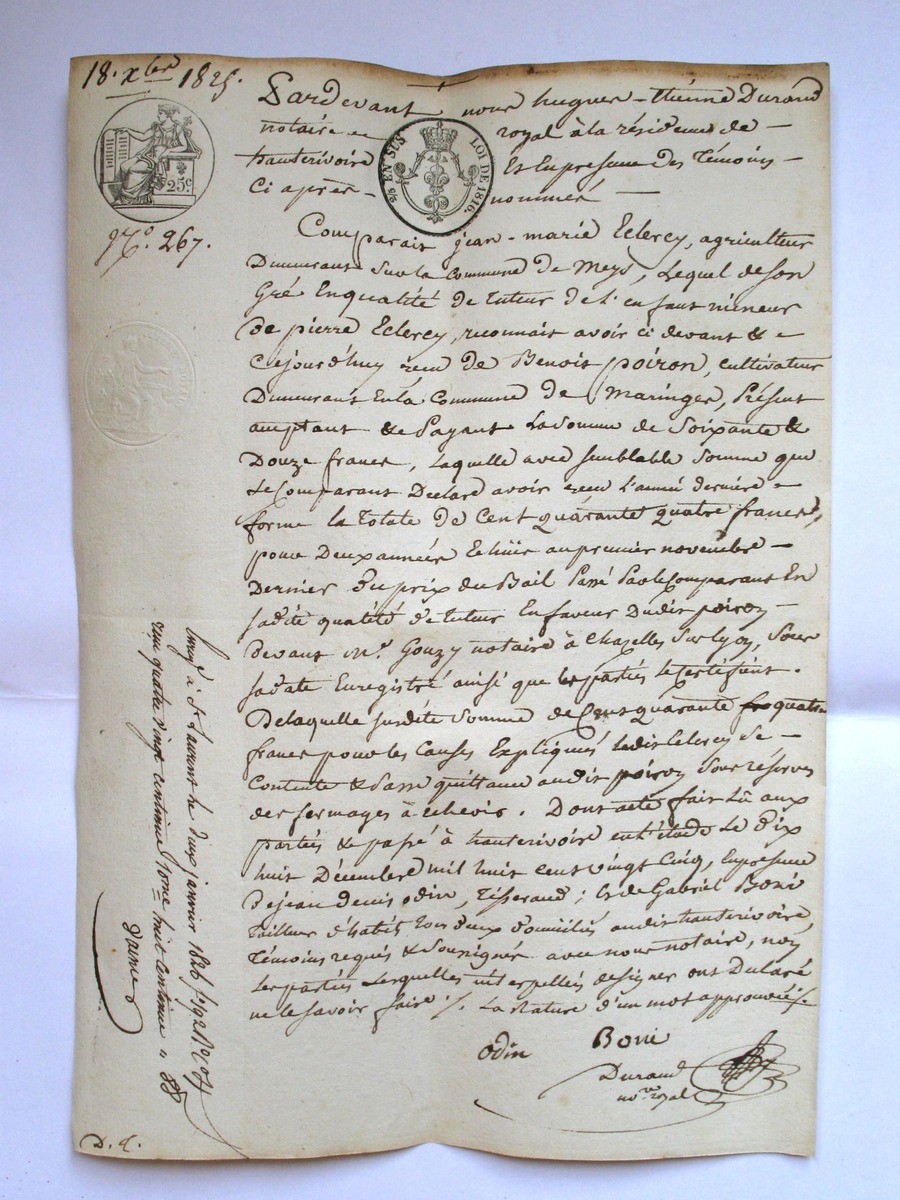 18. xbre 1825.
Pardevant nous hugues-Etienne Durand
notaire royal à la résidence de
hauterivoire Et En presence des Témoins
Ci après nommés
25c
2/5 EN SUS LOI DE 1816.
No. 267.
Comparait jean-marie Eclercy, agriculteur
Demeurant Sur la Commune de Meys, Lequel de son
Gré En qualité de tuteur de l'enfant mineur
de pierre Eclercy, reconnait avoir ci devant &
Cejourd'huy recu de Benoit poiron, cultivateur
Demeurant En la Commune de Maringes, Présent
acceptant & Payant La Somme de Soixante &
Douze francs, Laquelle avec semblable Somme que
Le Comparant Declare avoir recu l'année derniére
forme la Totale de Cent quarante quatre francs,
pour Deux années Echües au premier novembre
Dernier Du prix du Bail Passé Par le Comparant En
sadite qualité de tuteur En faveur Dudit poiron
Devant Me. Gouzy notaire à Chazelles Sur Lyon, Sous
sa date Enregistré ainsi que les parties le Certifient.
De laquelle susdite Somme de Cent quarante quatre
francs pour les Causes Expliqués ledit Eclercy Se
Contente & Passe quittance audit poiron Sous réserves
des fermages à echevir. Dont acte fait Lû aux
parties & passé à hauterivoire en l'étude Le Dix
huit Décembre mil huit cent vingt Cinq, En presence
De jean denis odin, Tisserand; Et de Gabriel Boni
Tailleur d'habits tous deux domiciliés audit hauterivoire
Témoins requis & Sousignés avec nous notaire, non
Les parties Lesquelles interpellés de signer ont Declaré
ne le savoir faire ·/. La rature d'un mot approuvée ·/.
odin Boni
Durand
not. royal
Enreg. à St Laurent le deux janvier 1826 fo 192
reçu quatre vingt centimes Dixme huit centimes
D. d.